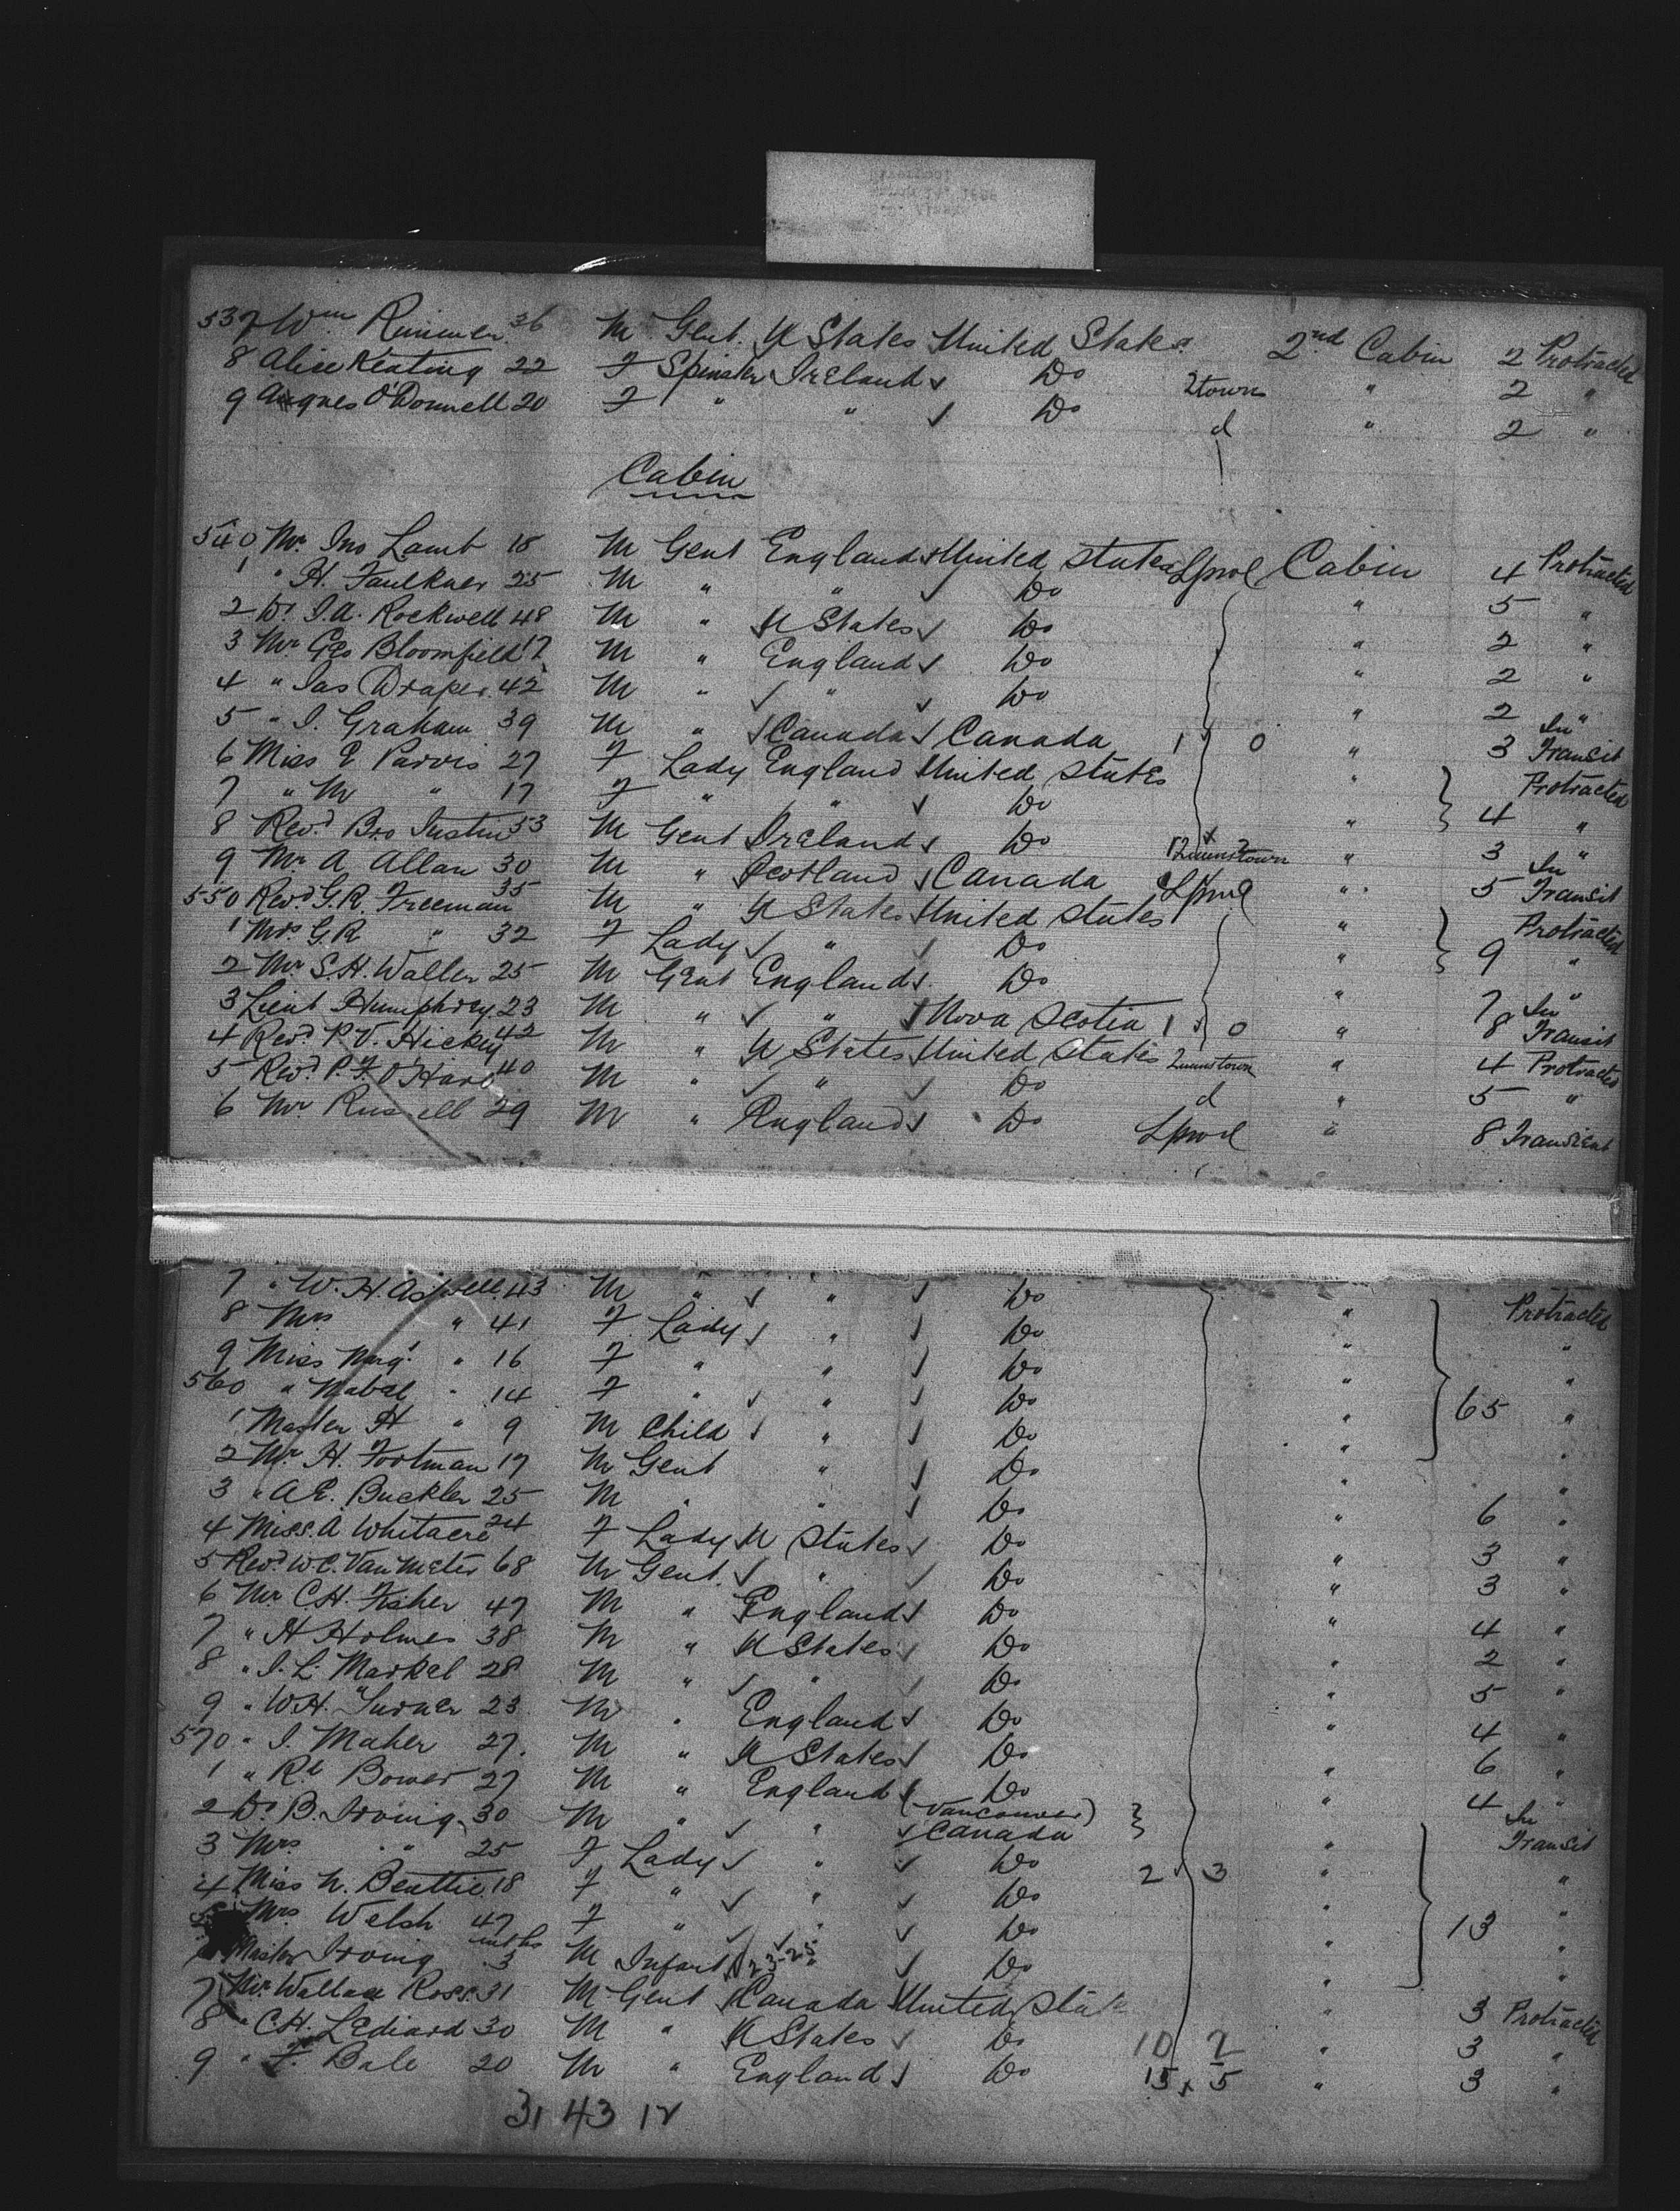 537 Wm Rimmer 36 M Gent. U States United States 2nd Cabin 2 Protracted
8 Alice Keating 22 F Spinster Ireland Do 2town " 2 "
9 Agnes O'Donnell 20 F " " Do d " 2 "
Cabin
540 Mr. Jno Lamb 18 M Gent England United States Lpool Cabin 4 Protracted
1 " H. Faulkner 25 M " " Do " 5 "
2 Dr J.A. Rockwell 48 M " U States Do " 2 "
3 Mr Geo Bloomfield 17 M " England Do " 2 "
4 " Jas Draper 42 M " " Do " 2 "
5 " J. Graham 39 M " Canada Canada 1 0 " 3 In Transit
6 Miss E Parvis 27 F Lady England United States " Protracted
7 " M " 17 F " " Do " 4 "
8 Revd. Bro Justin 53 M Gent Ireland Do Queenstown " 3 "
9 Mr. A Allan 30 M " Scotland Canada Lpool " 5 In Transit
550 Revd. G.R. Freeman 35 M " U States United States " Protracted
1 Mrs. G.R " 32 F Lady " Do " 9 "
2 Mr. S.H. Waller 25 M Gent England Do " 7 "
3 Lieut Humphrey 23 M " " Nova Scotia 1 0 " 8 In Transit
4 Revd. P.V. Hickey 42 M " U States United States Queenstown " 4 Protracted
5 Revd. P.F. O'Hare 40 M " " Do d " 5 "
6 Mr Russell 29 M " England Do Lpool " 8 Transient
7 " W.H. Aspell 43 M " " Do " Protracted
8 Mrs " 41 F Lady " Do " "
9 Miss Margt " 16 F " " Do " "
560 " Mabel " 14 F " " Do " 65 "
1 Master H " 9 M Child " Do " "
2 Mr. H. Footman 17 M Gent " Do " "
3 " A.E. Buckler 25 M " " Do " 6 "
4 Miss. A Whitacre 24 F Lady U States Do " 3 "
5 Revd W.C. Van Meter 68 M Gent. " Do " 3 "
6 Mr C.H. Fisher 47 M " England Do " 4 "
7 " H Holmes 38 M " U States Do " 2 "
8 " J. L. Markel 28 M " " Do " 5 "
9 " W.H. Turner 23 M " England Do " 4 "
570 " J. Maher 27. M " U States Do " 6 "
1 " Rd Bower 27 M " England Do " 4 "
2 Dr. B. Irving 30 M " " (Vancouver) Canada " In Transit
3 Mrs " 25 F Lady " Do 2 3 " "
4 Miss N. Beattie 18 F " " Do " "
5 Mrs Welsh 47 F " " Do " 13 "
Master Irving 3 mths M Infant " Do " "
7 Mr. Wallace Ross 31 M Gent Canada United State " 3 Protracted
8 " C.H. Lediard 30 M " U States Do 10 2 " 3 "
9 " F. Bale 20 M " England Do 15 5 " 3 "
31 43 12